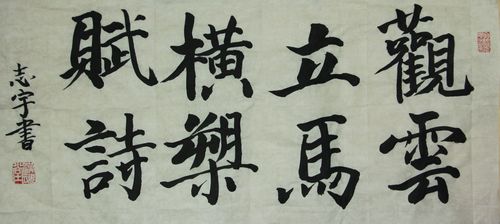 觀雲
立馬
橫槊
賦詩
志宇書